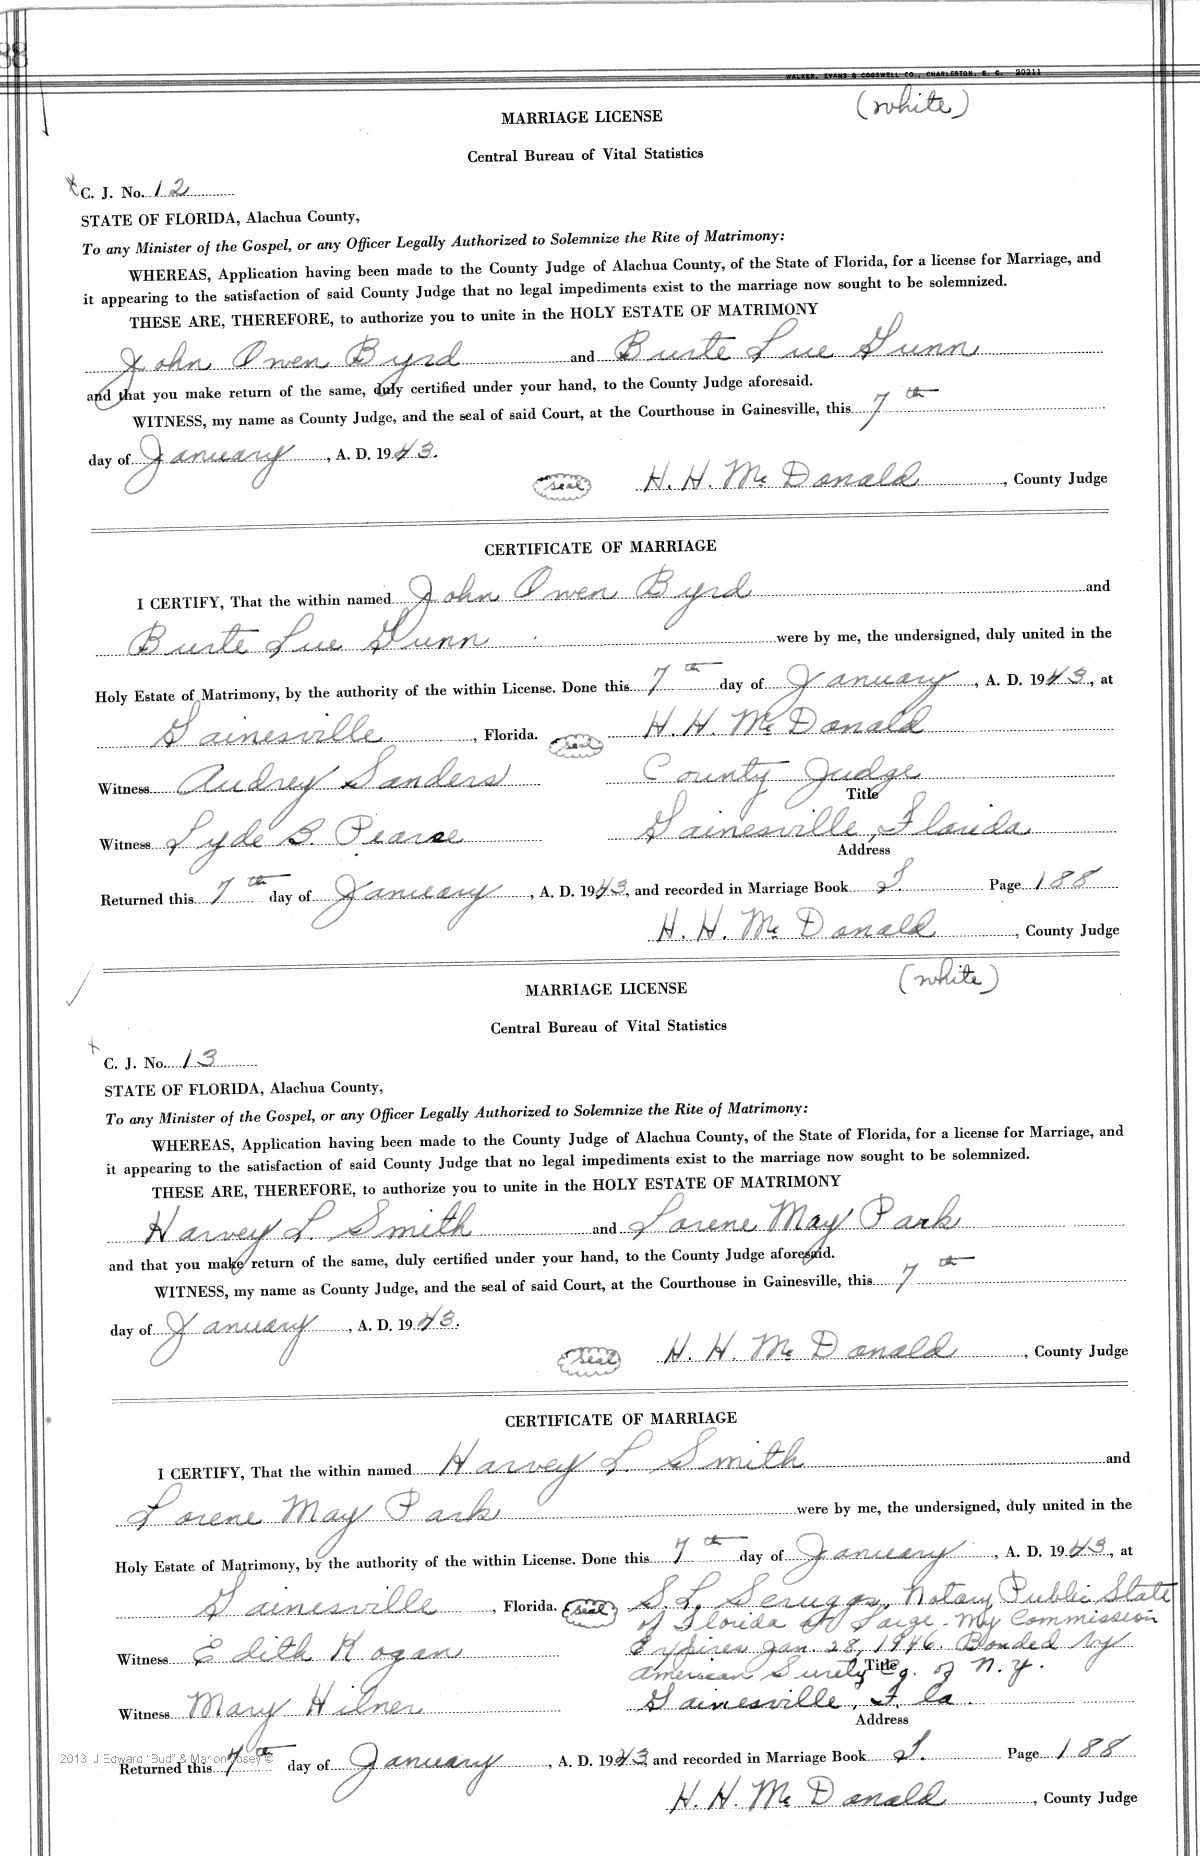 88
WALKER, EVANS & COGSWELL CO., CHARLESTON, S. C. 20211
(white)
MARRIAGE LICENSE
Central Bureau of Vital Statistics
C. J. No. 12
STATE OF FLORIDA, Alachua County,
To any Minister of the Gospel, or any Officer Legally Authorized to Solemnize the Rite of Matrimony:
WHEREAS, Application having been made to the County Judge of Alachua County, of the State of Florida, for a license for Marriage, and
it appearing to the satisfaction of said County Judge that no legal impediments exist to the marriage now sought to be solemnized.
THESE ARE, THEREFORE, to authorize you to unite in the HOLY ESTATE OF MATRIMONY
John Owen Byrd and Burte Lue Gunn
and that you make return of the same, duly certified under your hand, to the County Judge aforesaid.
WITNESS, my name as County Judge, and the seal of said Court, at the Courthouse in Gainesville, this 7th
day of January, A. D. 1943.
seal H. H. McDonald, County Judge
CERTIFICATE OF MARRIAGE
I CERTIFY, That the within named John Owen Byrd and
Burte Lue Gunn were by me, the undersigned, duly united in the
Holy Estate of Matrimony, by the authority of the within License. Done this 7th day of January, A. D. 1943, at
Gainesville, Florida. seal H. H. McDonald
Witness Audrey Sanders County Judge
Title
Witness Lyde B. Pearce Gainesville, Florida
Address
Returned this 7th day of January, A. D. 1943, and recorded in Marriage Book Page 188
H. H. McDonald, County Judge
(white)
MARRIAGE LICENSE
Central Bureau of Vital Statistics
C. J. No. 13
STATE OF FLORIDA, Alachua County,
To any Minister of the Gospel, or any Officer Legally Authorized to Solemnize the Rite of Matrimony:
WHEREAS, Application having been made to the County Judge of Alachua County, of the State of Florida, for a license for Marriage, and
it appearing to the satisfaction of said County Judge that no legal impediments exist to the marriage now sought to be solemnized.
THESE ARE, THEREFORE, to authorize you to unite in the HOLY ESTATE OF MATRIMONY
Harvey L. Smith and Lorene May Park
and that you make return of the same, duly certified under your hand, to the County Judge aforesaid.
WITNESS, my name as County Judge, and the seal of said Court, at the Courthouse in Gainesville, this 7th
day of January, A. D. 1943.
seal H. H. McDonald, County Judge
CERTIFICATE OF MARRIAGE
I CERTIFY, That the within named Harvey L. Smith and
Lorene May Park were by me, the undersigned, duly united in the
Holy Estate of Matrimony, by the authority of the within License. Done this 7th day of January, A. D. 1943, at
Gainesville, Florida. seal S. L. Scruggs, Notary Public State
of Florida at Large. My Commission
Witness Edith Kogan Expires Jan. 28, 1946. Bonded by
American Surety Co. of N.Y.
Title
Witness Mary Hilner Gainesville, Fla.
Address
2013 J Edward "Bud" & Marion Josey ©
Returned this 7th day of January, A. D. 1943 and recorded in Marriage Book Page 188
H. H. McDonald, County Judge